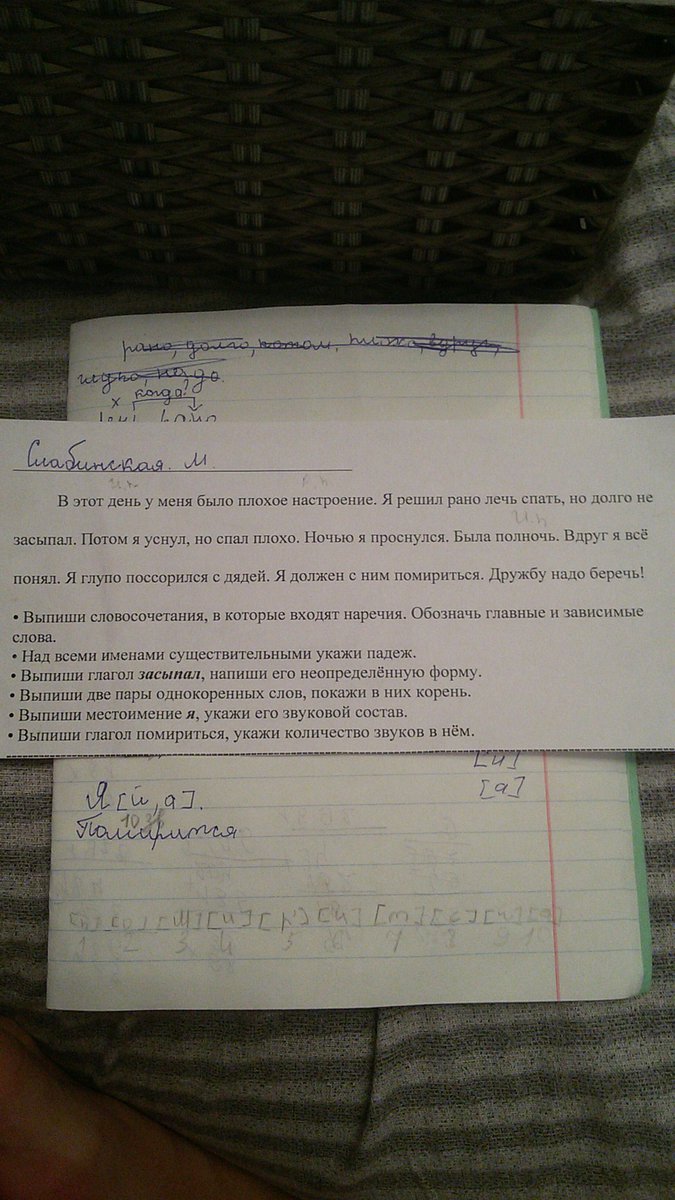 рано, долго, потом, плохо, вдруг,
глупо, надо.
когда?
х
лечь рано
Слабинская. М.
И.п
Р.п
В этот день у меня было плохое настроение. Я решил рано лечь спать, но долго не
И.п
засыпал. Потом я уснул, но спал плохо. Ночью я проснулся. Была полночь. Вдруг я всё
понял. Я глупо поссорился с дядей. Я должен с ним помириться. Дружбу надо беречь!
• Выпиши словосочетания, в которые входят наречия. Обозначь главные и зависимые
слова.
• Над всеми именами существительными укажи падеж.
• Выпиши глагол засыпал, напиши его неопределённую форму.
• Выпиши две пары однокоренных слов, покажи в них корень.
• Выпиши местоимение я, укажи его звуковой состав.
• Выпиши глагол помириться, укажи количество звуков в нём.
[й]
Я [й, а].
[а]
10 зв
Помирится
[м] [и] [р] [и] [т]
1 2 3 4 5 6 7 8 9 10